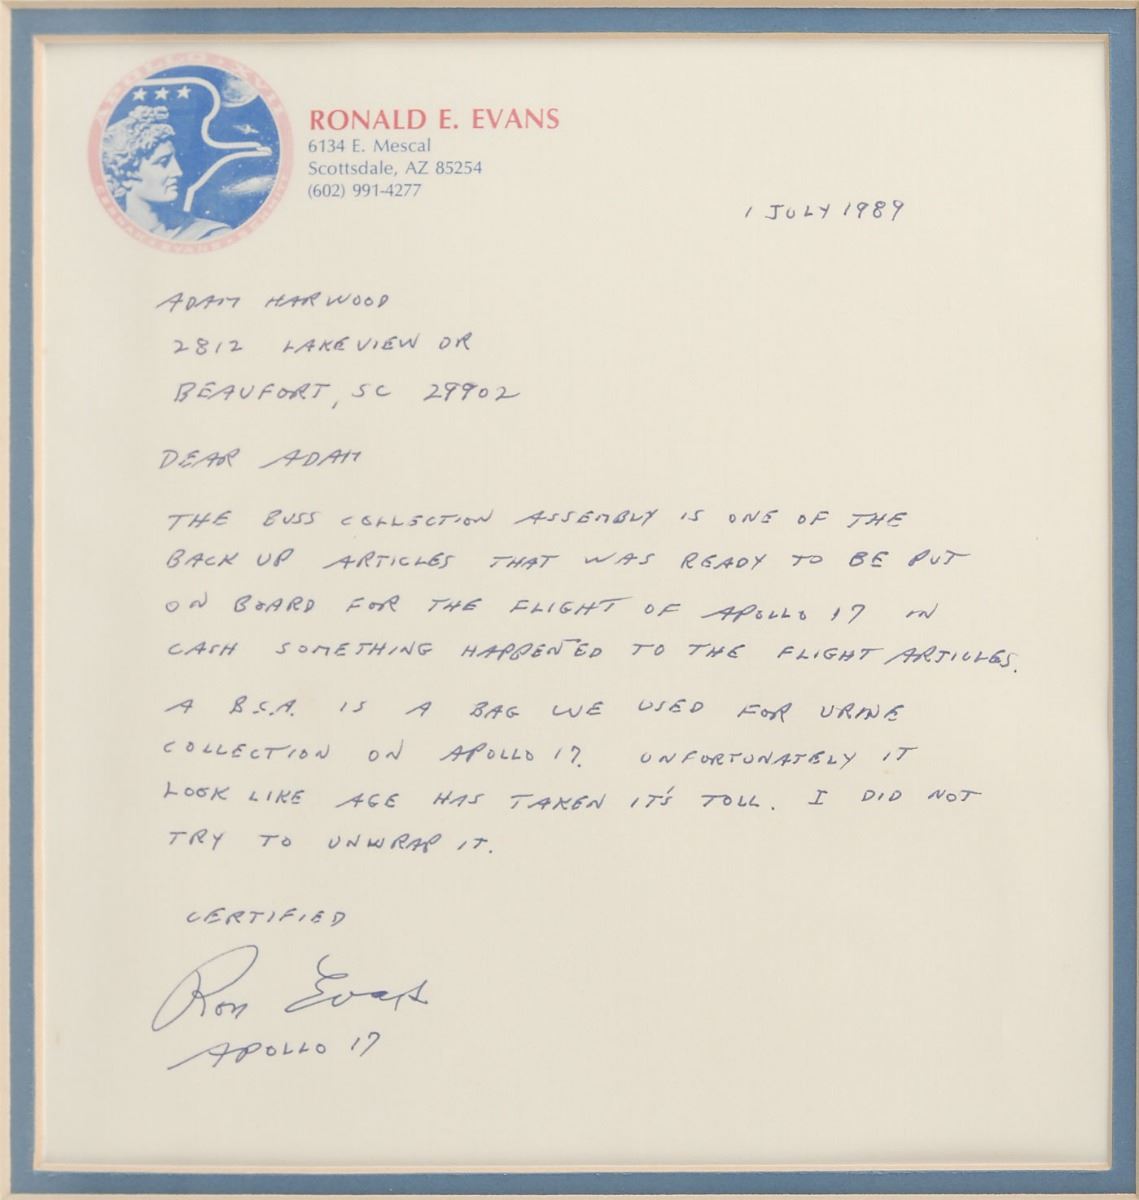 APOLLO XVII
RONALD E. EVANS
6134 E. Mescal
Scottsdale, AZ 85254
(602) 991-4277
1 JULY 1989
ADAM HARWOOD
2812 LAKEVIEW DR
BEAUFORT, SC 29902
DEAR ADAM
THE BUSS COLLECTION ASSEMBLY IS ONE OF THE
BACK UP ARTICLES THAT WAS READY TO BE PUT
ON BOARD FOR THE FLIGHT OF APOLLO 17 IN
CASH SOMETHING HAPPENED TO THE FLIGHT ARTICLES.
A B.C.A. IS A BAG WE USED FOR URINE
COLLECTION ON APOLLO 17. UNFORTUNATELY IT
LOOK LIKE AGE HAS TAKEN IT'S TOLL. I DID NOT
TRY TO UNWRAP IT.
CERTIFIED
Ron Evans
APOLLO 17